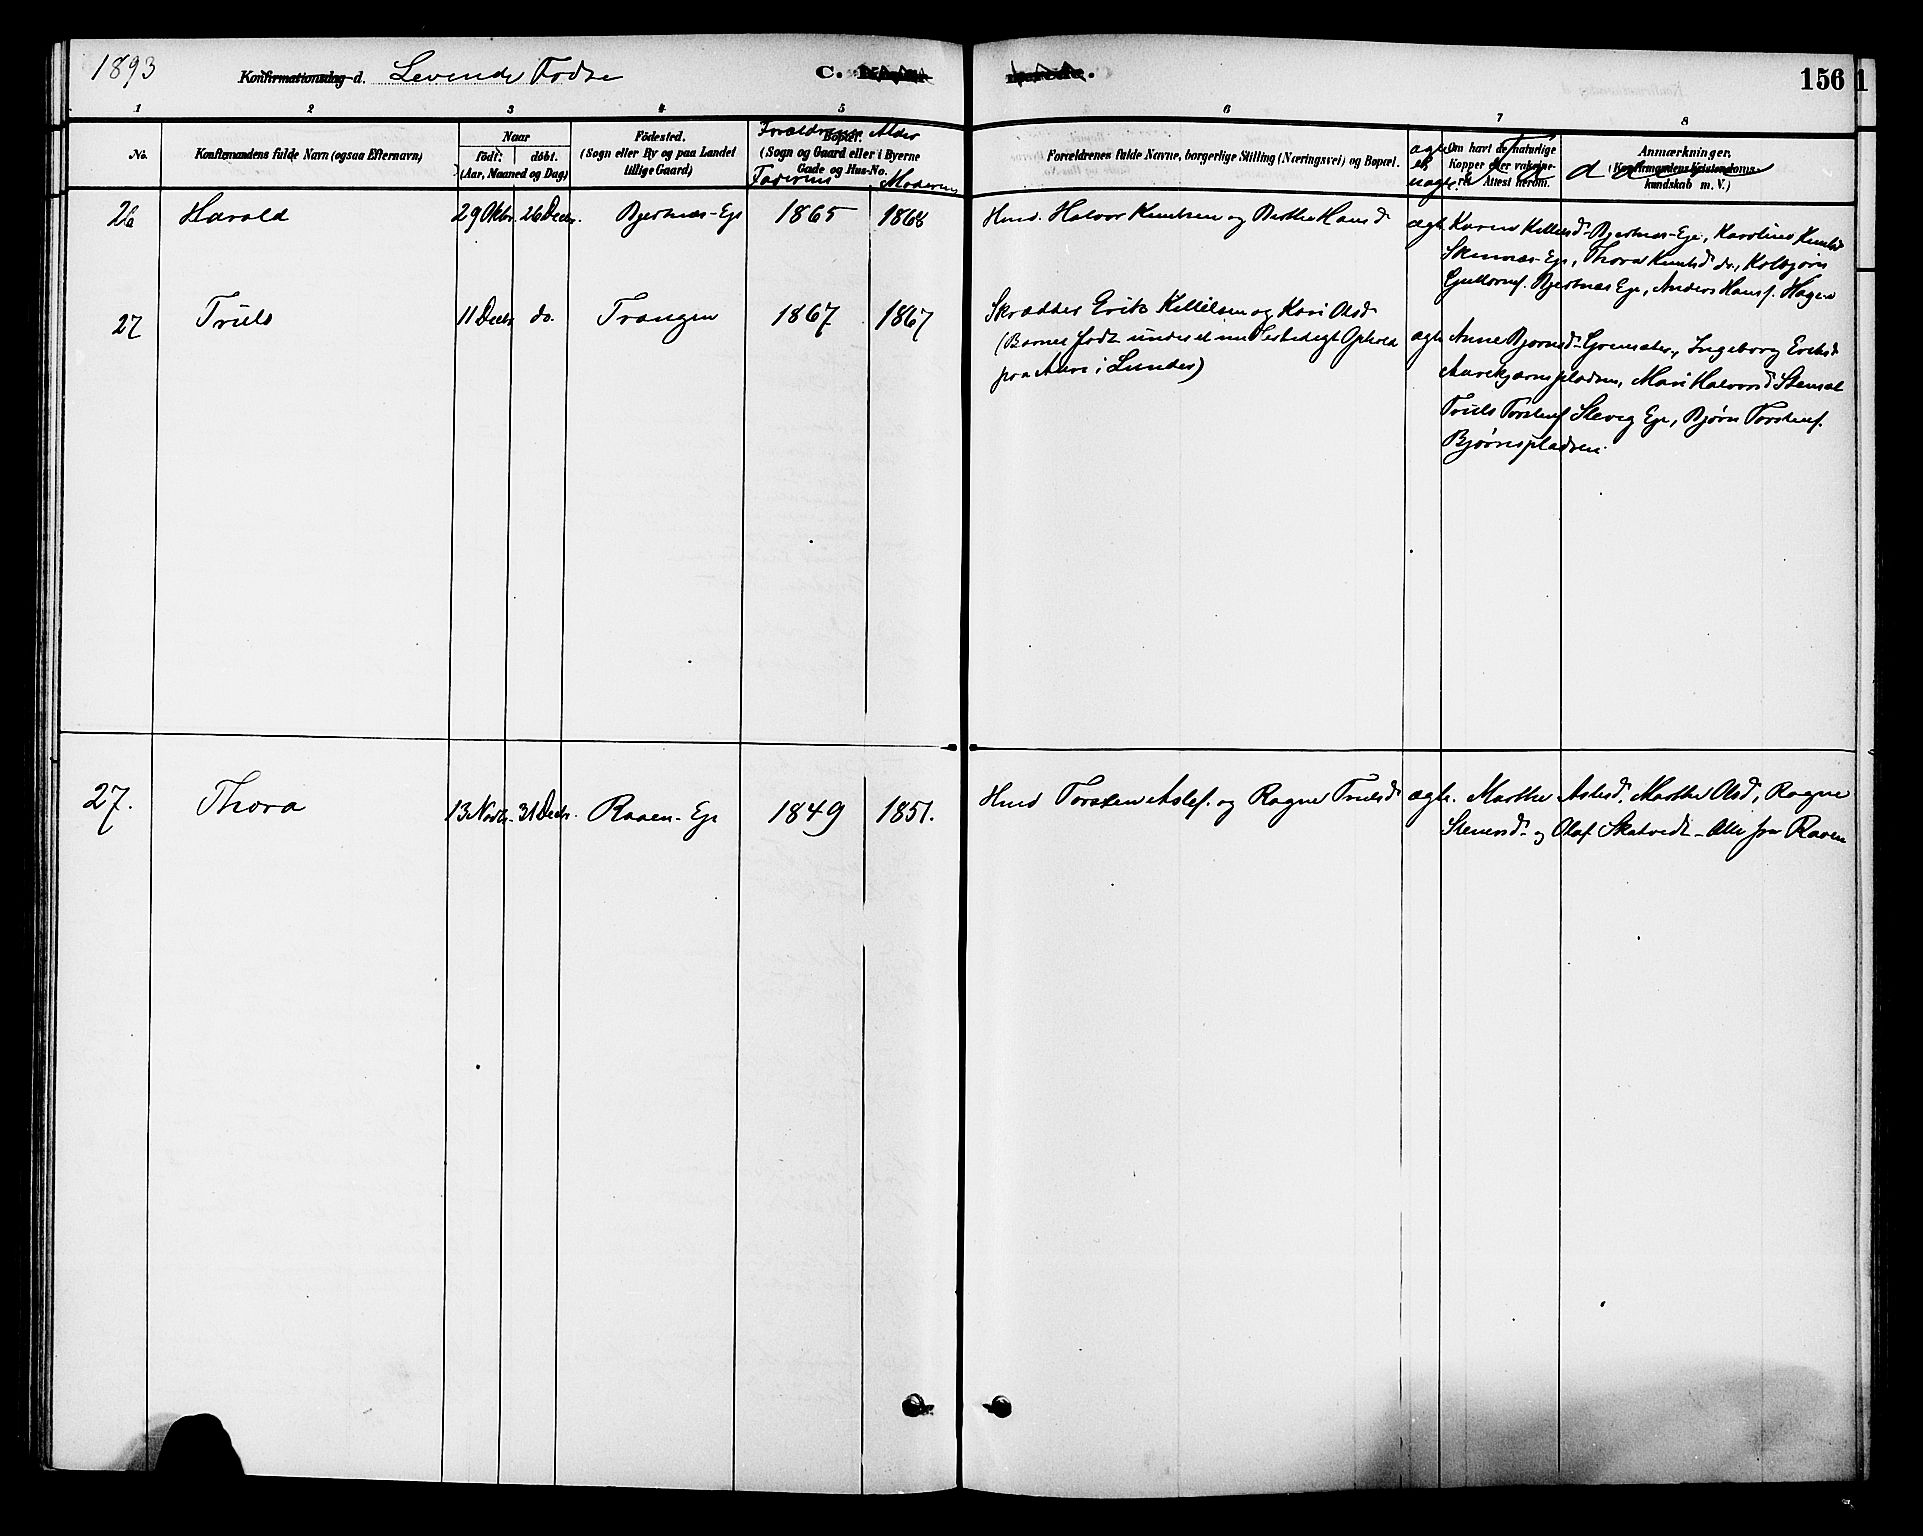 1893
Konfirmationsdag d. Levende Fødte
C.
156
1 2 3 4 5 6 7 8
No.
Konfirmandens fulde Navn (ogsaa Efternavn)
Naar
födt: döbt.
(Aar, Maaned og Dag)
Födested.
(Sogn eller By og paa Landet
tillige Gaard)
Forældrenes Alder
Bopæl.
(Sogn og Gaard eller i Byerne
Gade og Hus-No.
Faderens Moderens
Forældrenes fulde Navne, borgerlige Stilling (Næringsvei) og Bopæl.
ægte
el.
uægte
Om havt de naturlige
Kopper eller vakcine-
ret Attest herom.
Anmærkninger.
(Konfirmandens Kristendoms-
kundskab m. V.)
F a d d e r e
26 Harald 29 Oktbr. 26 Decbr. Bjertnæs-Eje 1865 1868 Hmd. Halvor Knutsen og Berthe Hansd. ægte Karen Kittilsd. Bjertnæs-Eje, Karoline Knutsd
Eje, Thora Knutsd. do., Kolbjørn
Bjertnæs Eje, Anders Hansf. Hagen
27 Truls 11 Decbr do. Trangen 1867 1867 Skrædder Erik Kittilsen og Kari Olsd.
(Barnet født under et Ophold
paa i Lunder)
ægte Anne Bjørnsd. Ingeborg Eriksd
Mari Halvorsd
Truls Torstenf. Eje, Bjørn Torstenf.
Bjørnspladsen.
27. Thora 13 Novbr. 31 Decbr. Raaen-Eje 1849 1851. Hmd Torsten Aslef. og Ragne Trulsd. ægte. Marthe Aslesd. Marthe Olsd, Ragne
Stenersd. og Olaf Skatvedt - Alle fra Raaen